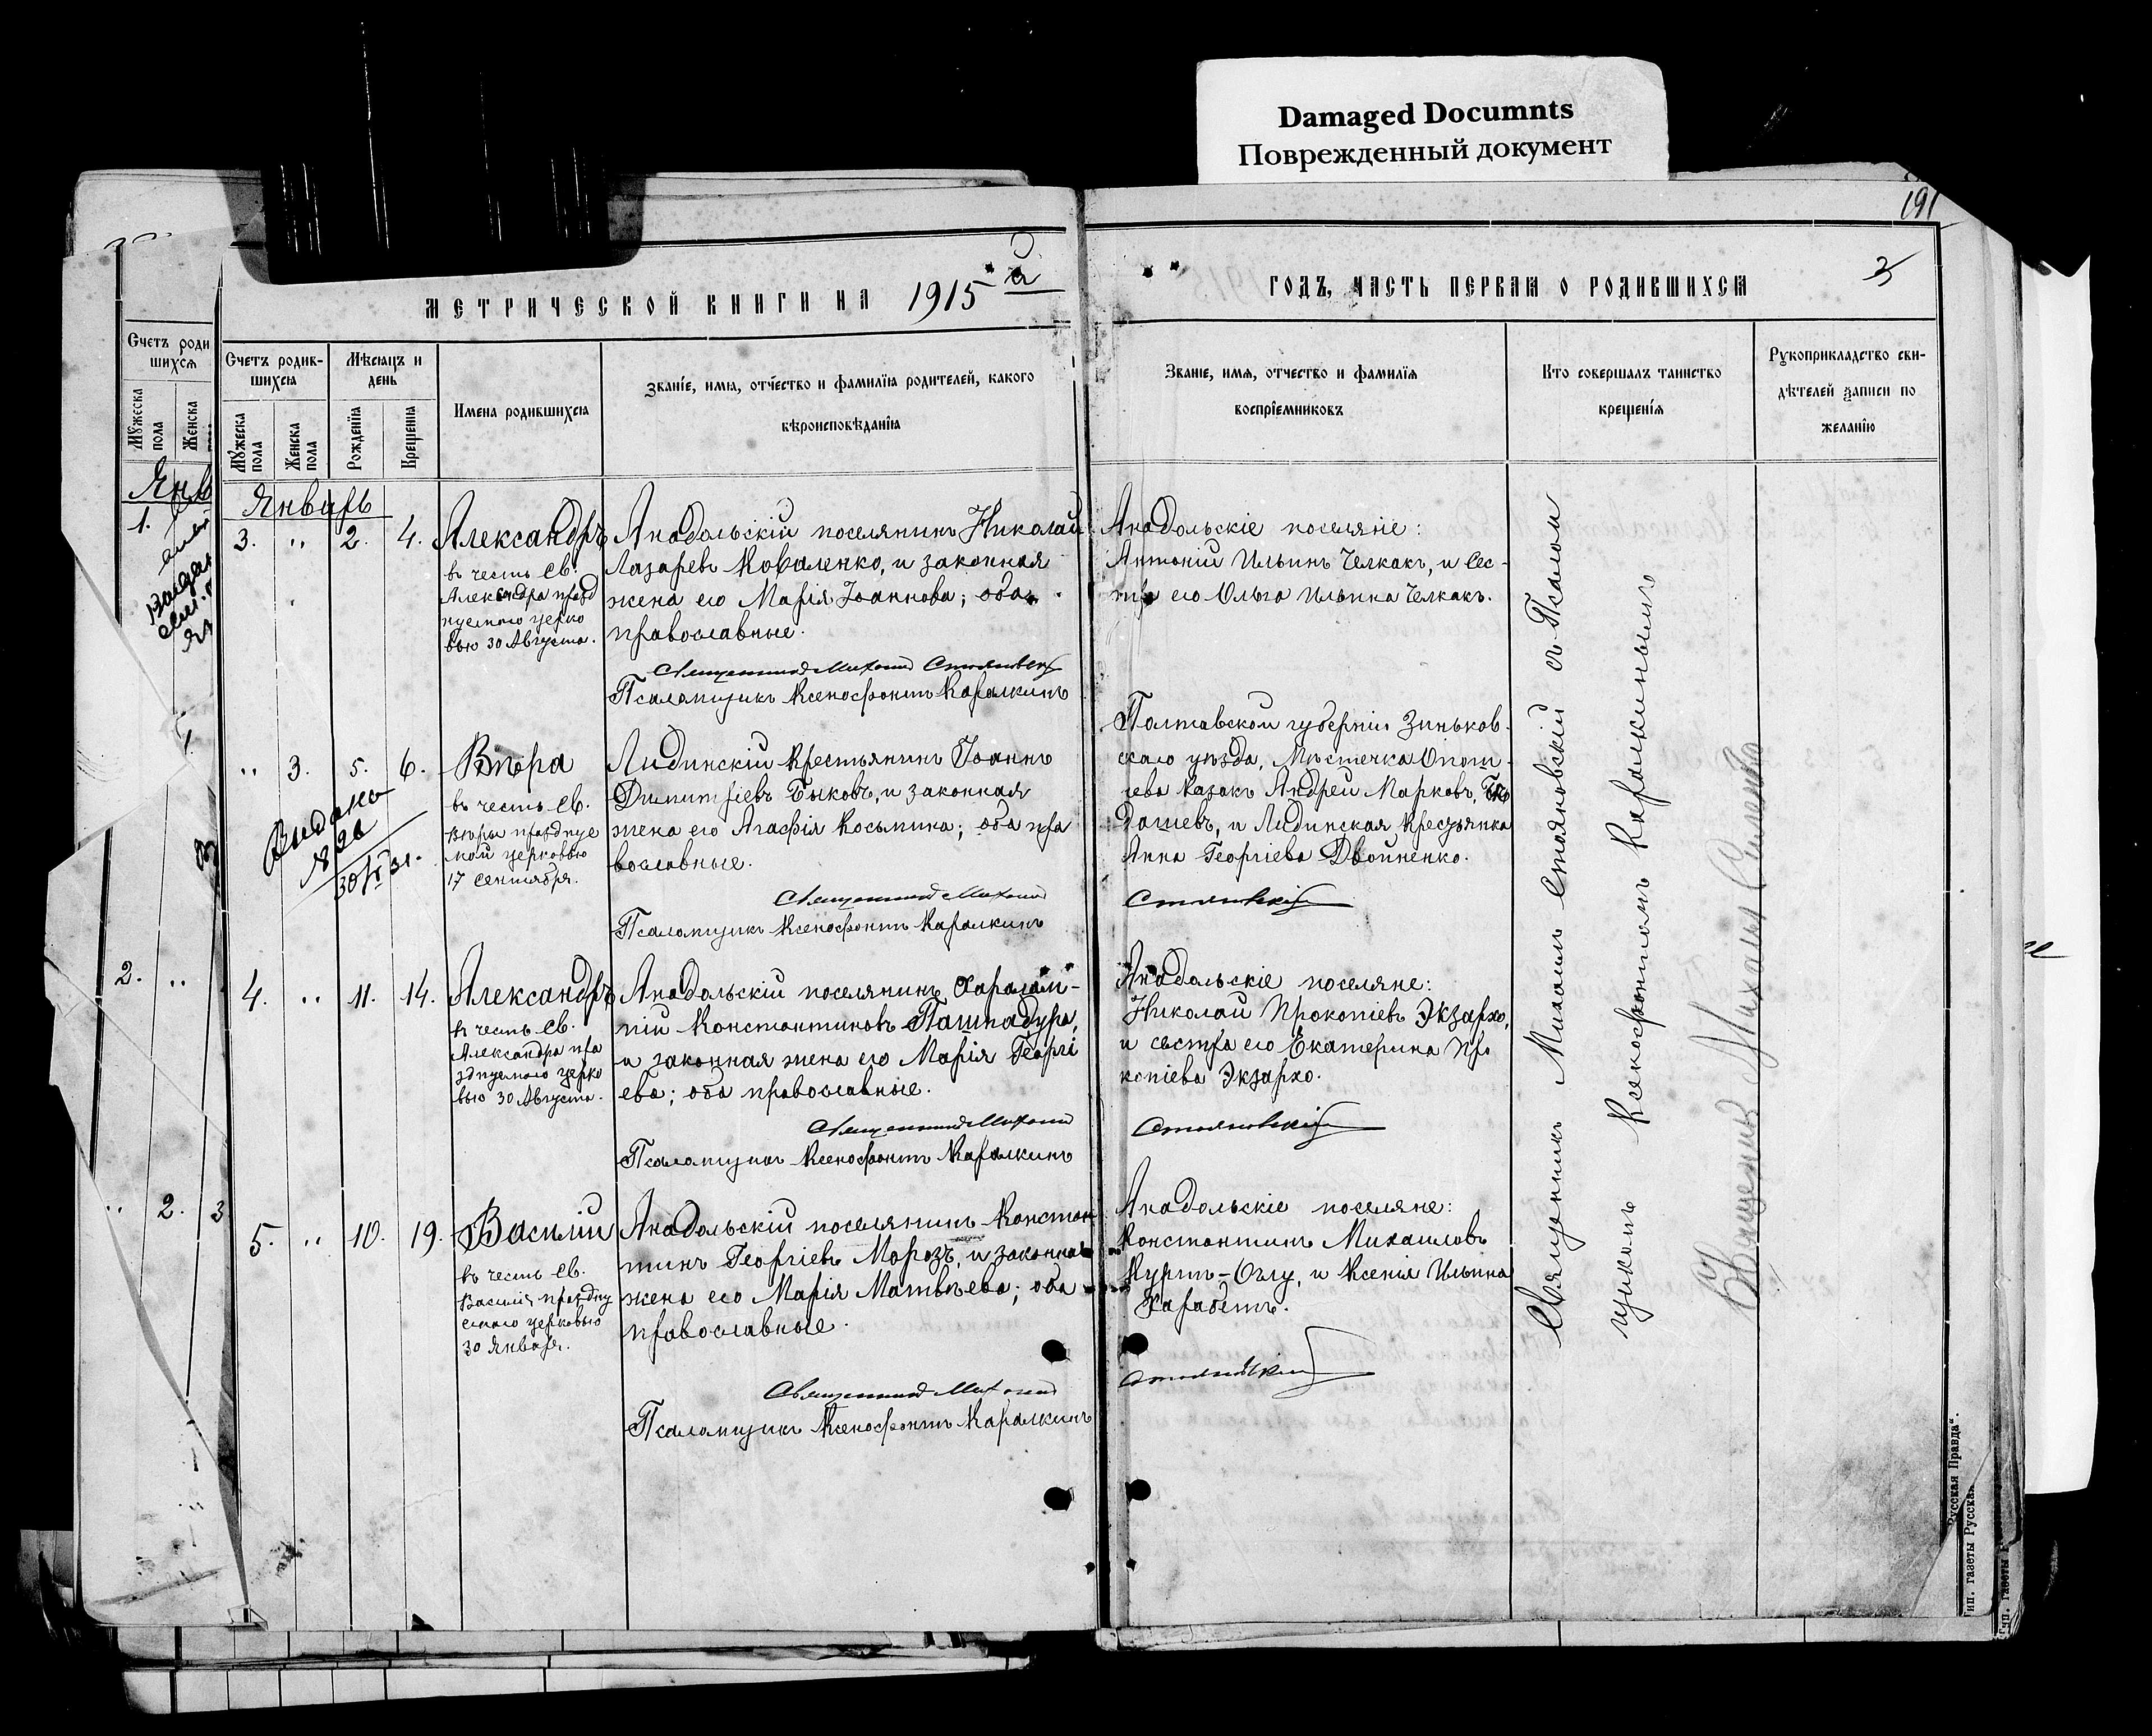 Damaged Documnts
Поврежденный документ
191
3
МЕТРИЧЕСКОЙ КНИГИ НА 1915
ГОДЪ, ЧАСТЬ ПЕРВАЯ О РОДИВШИХСЯ
Счетъ роди
шихся
Мужеска пола
Женска
Янв
1.
2. "
" 2. 3
Счетъ родив-
шихся
Мужеска пола
Женска пола
Мѣсяцъ и
день
Рожденія
Крещенія
Имена родившихся
Званіе, имя, отчество и фамилія родителей, какого
вѣроисповѣданія
Званіе, имя, отчество и фамилія
воспріемниковъ
Кто совершалъ таинство
крещенія
Рукоприкладство сви-
дѣтелей записи по
желанію
Январь
3. " 2. 4.
Александръ
въ честь св.
Александра празд
нуемаго церко
вью 30 Августа.
Анадольскій поселянинъ Николай
Лазаревъ Коваленко, и законная
жена его Марія Іоаннова; оба
православные.
Священникъ Михаилъ Стояновскій
Псаломщикъ Ксенофонтъ Каралкинъ
Анадольскіе поселяне:
Антоній Ильинъ Челкакъ, и сес-
тра его Ольга Ильина Челкакъ.
" 3. 5. 6.
Выдано
Вѣра
въ честь св.
Вѣры празднуе
мой церковью
17 Сентября.
Лидинскій крестьянинъ Іоаннъ
Димитріевъ Быковъ, и законная
жена его Агафія Косьмина; оба пра
вославные.
Священникъ Михаилъ
Псаломщикъ Ксенофонтъ Каралкинъ
Полтавской губерніи Зиньков-
скаго уѣзда, Мѣстечка Опош-
нева казакъ Андрей Марковъ,
дашевъ, и Лидинская крестьянка
Анна Георгіева Двойненко.
Стояновскій
4. " 11. 14.
Александръ
въ честь св.
Александра пра
зднуемаго церко
вью 30 Августа.
Анадольскій поселянинъ Харалам-
пій Константиновъ Пашпадура,
и законная жена его Марія Георгі
ева; оба православные.
Священникъ Михаилъ
Псаломщикъ Ксенофонтъ Каралкинъ
Анадольскіе поселяне:
Николай Прокопіевъ Экзархо,
и сестра его Екатерина Про
копіева Экзархо.
Стояновскій
5. " 10. 19.
Василій
въ честь св.
Василія праздну
емаго церковью
30 Января.
Анадольскій поселянинъ Констан
тинъ Георгіевъ Морозъ, и законная
жена его Марія Матвѣева; оба
православные.
Священникъ Михаилъ
Псаломщикъ Ксенофонтъ Каралкинъ
Анадольскіе поселяне:
Константинъ Михаиловъ
Куртъ-Оглу, и Ксенія Ильина
Карабетъ.
Стояновскій
Священникъ Михаилъ Стояновскій съ Псалом
щикомъ Ксенофонтомъ Каралкинымъ
Русская Правда".
ип. газеты Русская